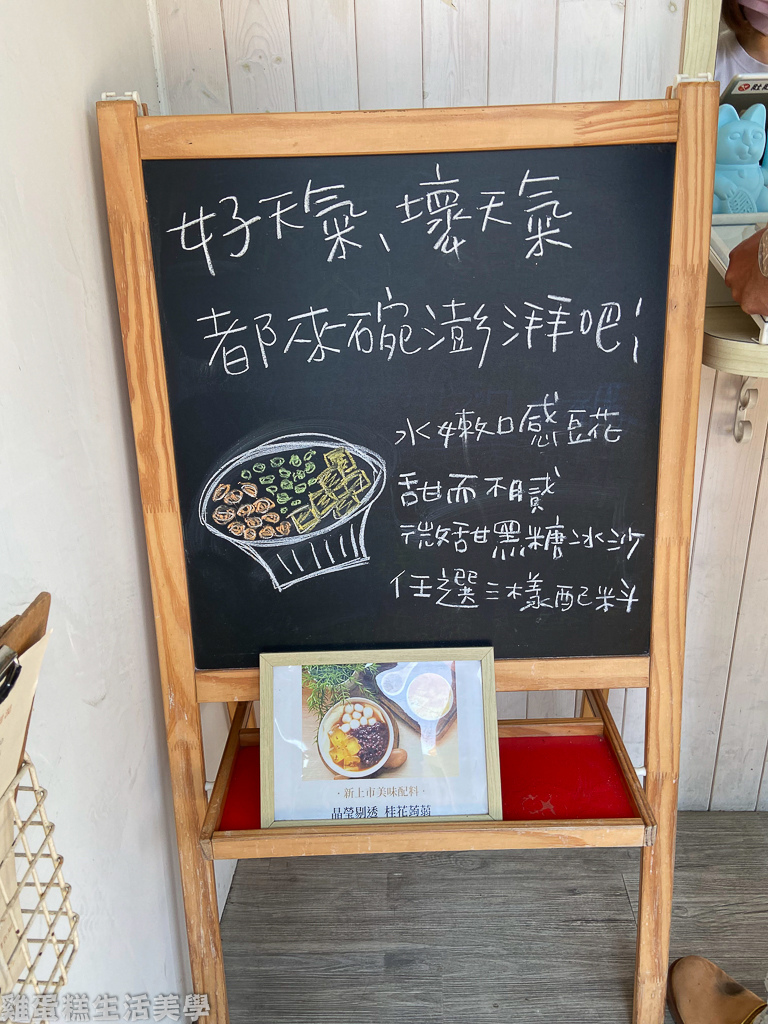 好天氣、壞天氣
都來碗澎湃吧！
水嫩口感豆花
甜而不膩
微甜黑糖冰沙
任選三樣配料
·新上市美味配料·
晶瑩剔透 桂花蒟蒻
雞蛋糕生活美學